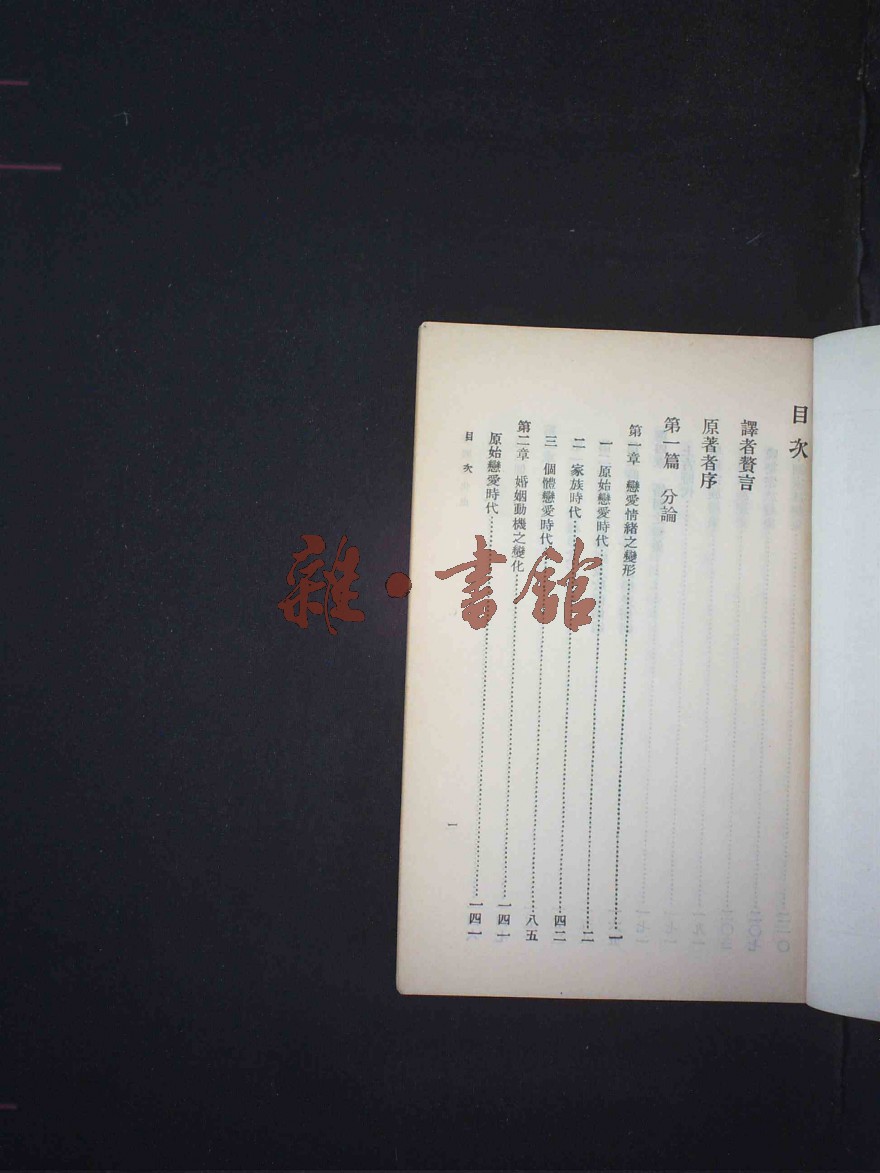 目次
譯者贅言
原著者序
第一篇　分論
第一章　戀愛情緒之變形……一
一　原始戀愛時代……二
二　家族時代……四二
三　個體戀愛時代……八五
第二章　婚姻動機之變化……一四一
原始戀愛時代……一四一
目次
一
雜·書館